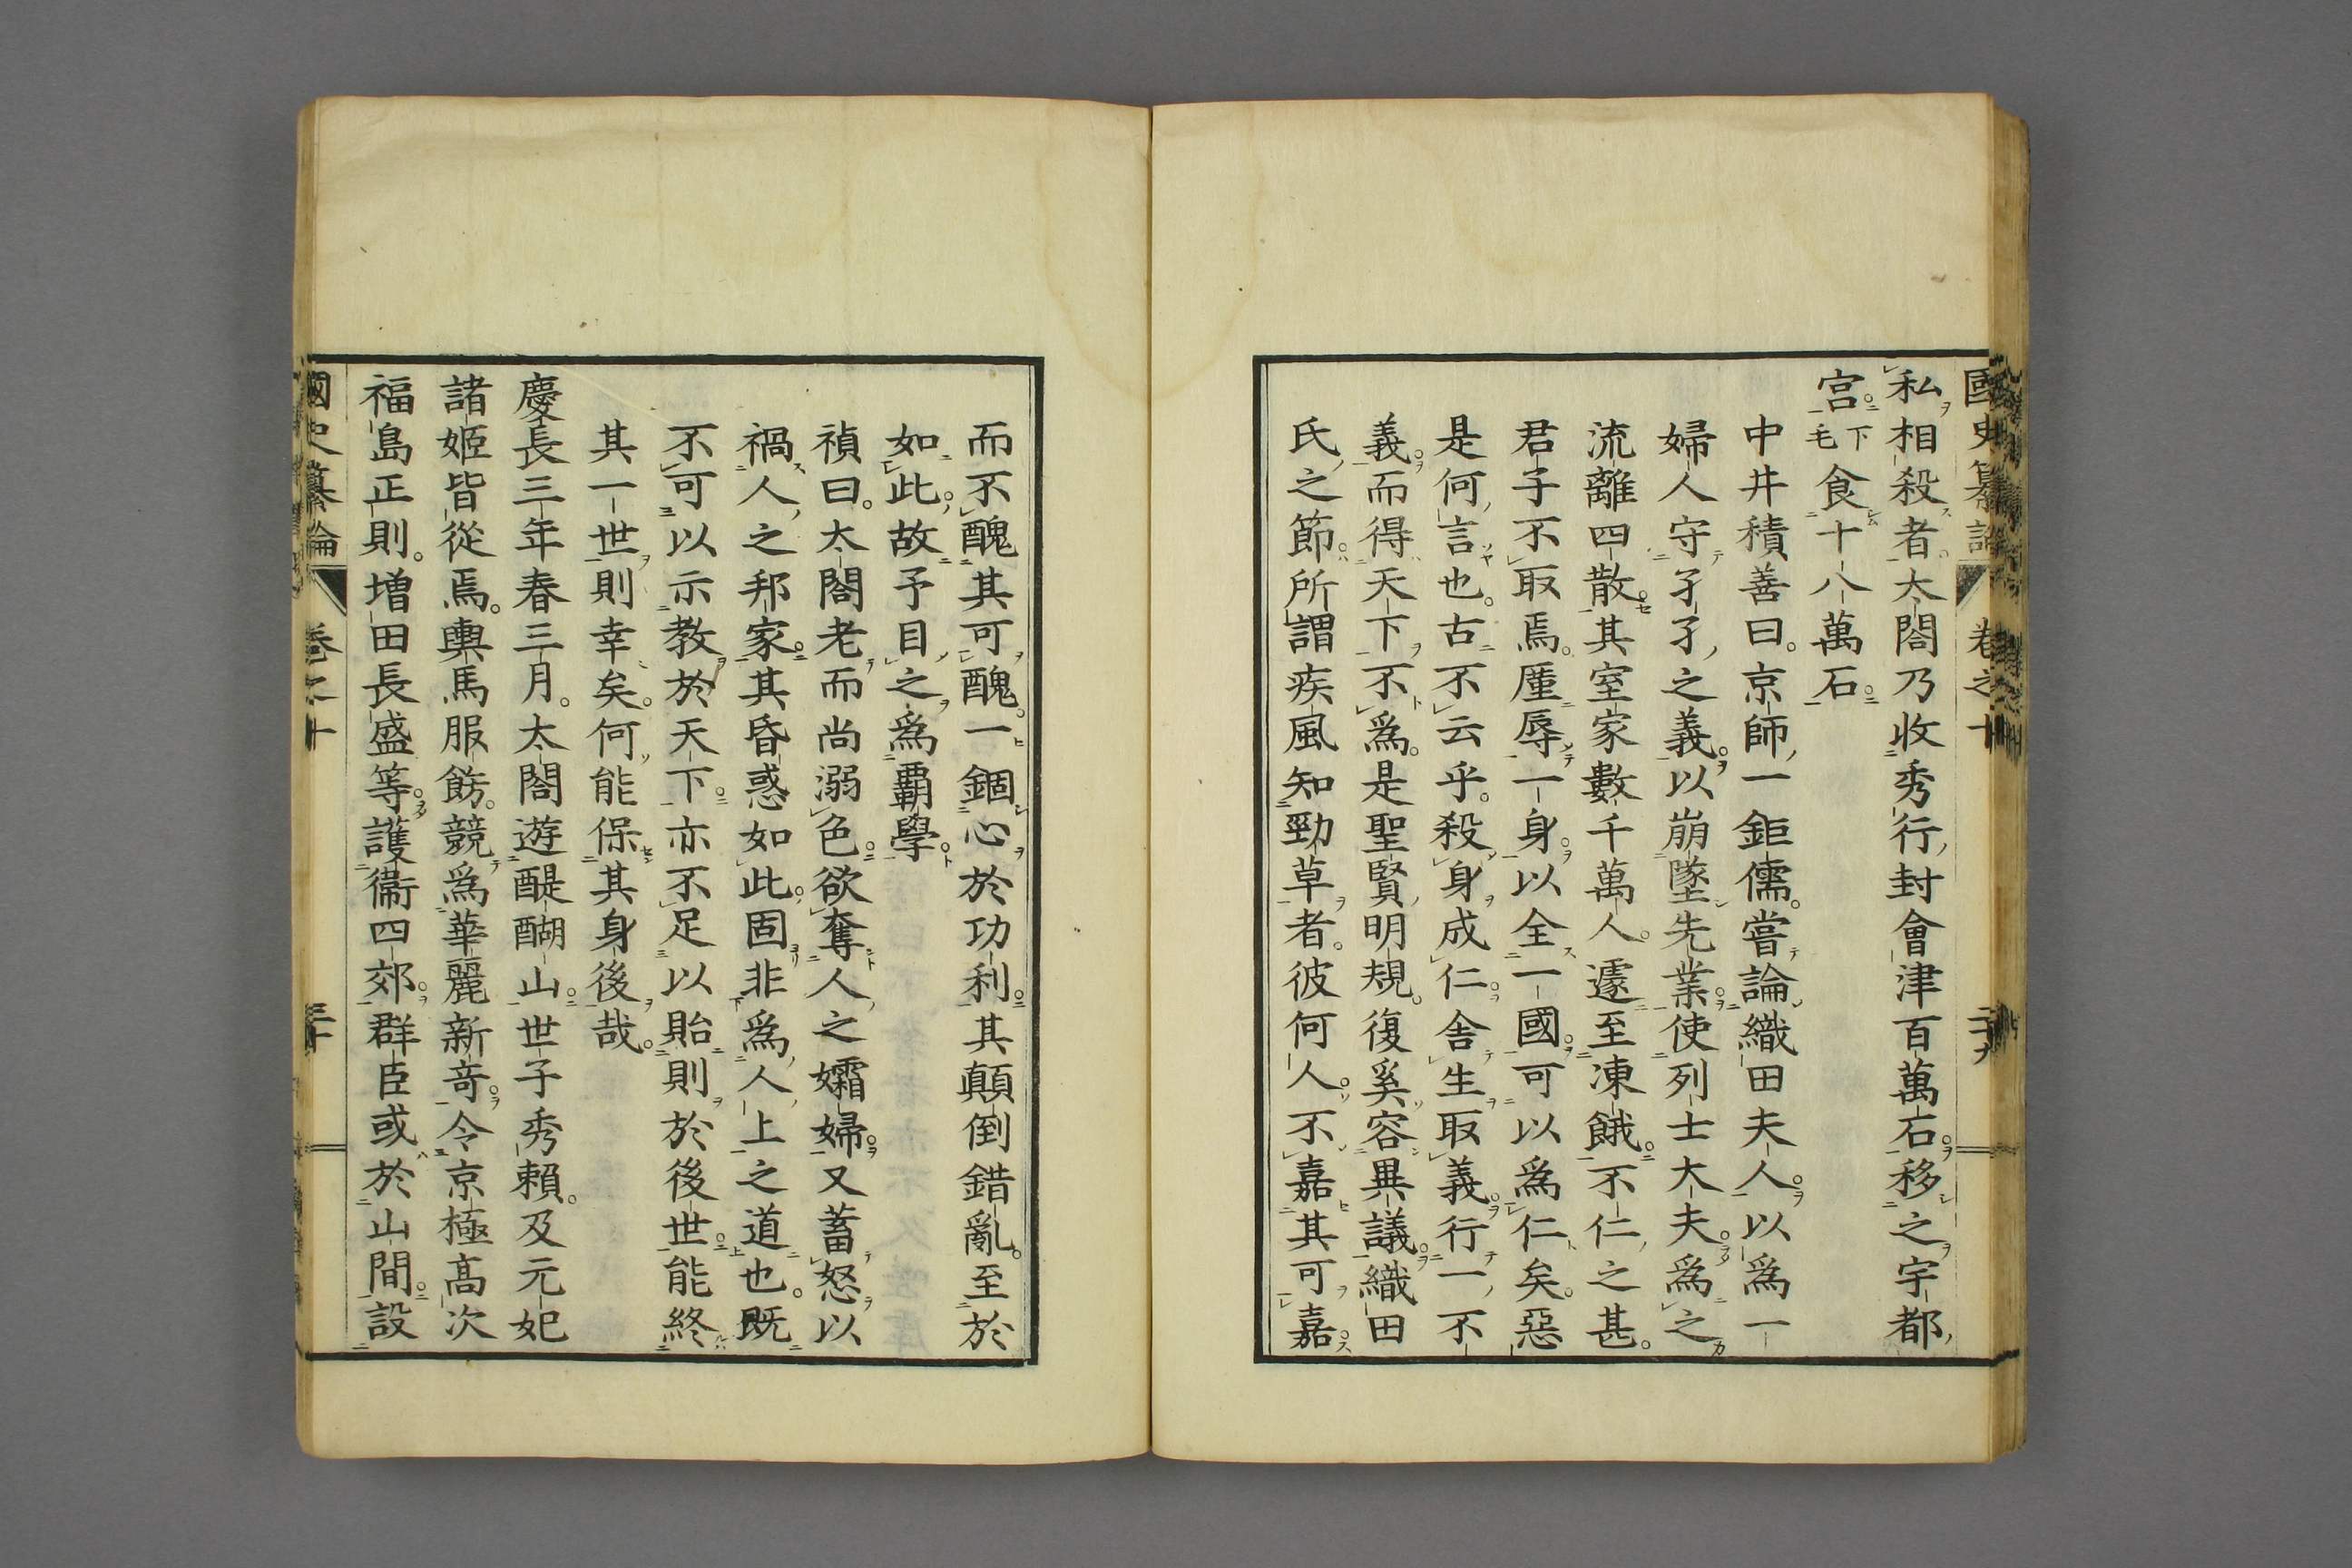 國史纂論 卷之十 二十九
私相殺者。太閤乃收秀行封會津百萬石。移之宇都
宮。下毛食十八萬石。
中井積善曰。京師一鉅儒。嘗論織田夫人。以爲一
婦人守孑孑之義。以崩墜先業。使列士大夫爲之
流離四散。其室家數千萬人。遽至凍餓。不仁之甚。
君子不取焉。厪辱一身。以全一國。可以爲仁矣。惡
是何言也。古不云乎。殺身成仁。舍生取義。行一不
義。而得天下。不爲。是聖賢明規。復奚容異議。織田
氏之節。所謂疾風知勁草者。彼何人。不嘉其可嘉。
而不醜其可醜。一錮心於功利。其顛倒錯亂。至於
如此。故予目之爲覇學。
禎曰。太閤老而尚溺色。欲奪人之孀婦。又蓄怒以
禍人之邦家。其昏惑如此。固非爲人上之道也。既
不可以示教於天下。亦不足以貽則於後世。能終
其一世則幸矣。何能保其身後哉。
慶長三年春三月。太閤遊醍醐山。世子秀賴。及元妃
諸姬皆從焉。輿馬服餝。競爲華麗新竒。令京極高次
福島正則。増田長盛等。護衞四郊。群臣或於山間。設
國史纂論 卷之十 三十